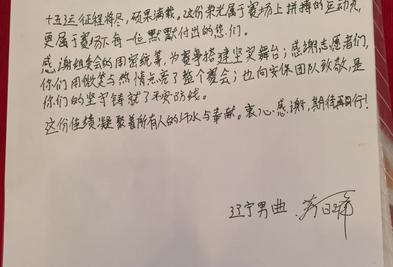 十五运征程将尽，硕果满载。这份荣光属于赛场上拼搏的运动员，
更属于赛场下每一位默默付出的您们。
感谢组委会的周密统筹，为赛事搭建坚实舞台；感谢志愿者们，
你们用微笑与热情点亮了整个赛会；也向安保团队致敬，是
你们的坚守铸就了平安防线。
这份佳绩凝聚着所有人的汗水与奉献。衷心感谢，期待再行！
辽宁男曲